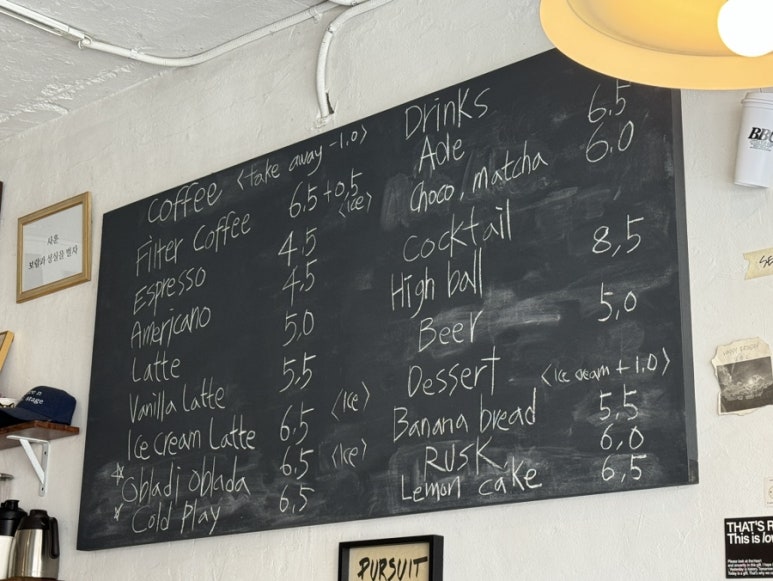 Coffee <take away -1.0>
Filter Coffee 6.5+0.5 <ice>
Espresso 4.5
Americano 4.5
Latte 5.0
Vanilla Latte 5.5
Ice cream Latte 6.5 <Ice>
*Obladi Oblada 6.5 <Ice>
*Cold Play 6.5
Drinks
Ade 6.5
Choco, matcha 6.0
Cocktail
High ball 8.5
Beer 5.0
Dessert <Ice cream +1.0>
Banana bread 5.5
RUSK 6.0
Lemon cake 6.5
사훈
보람과 성실을 벌자
PURSUIT
THAT'S R
This is lov